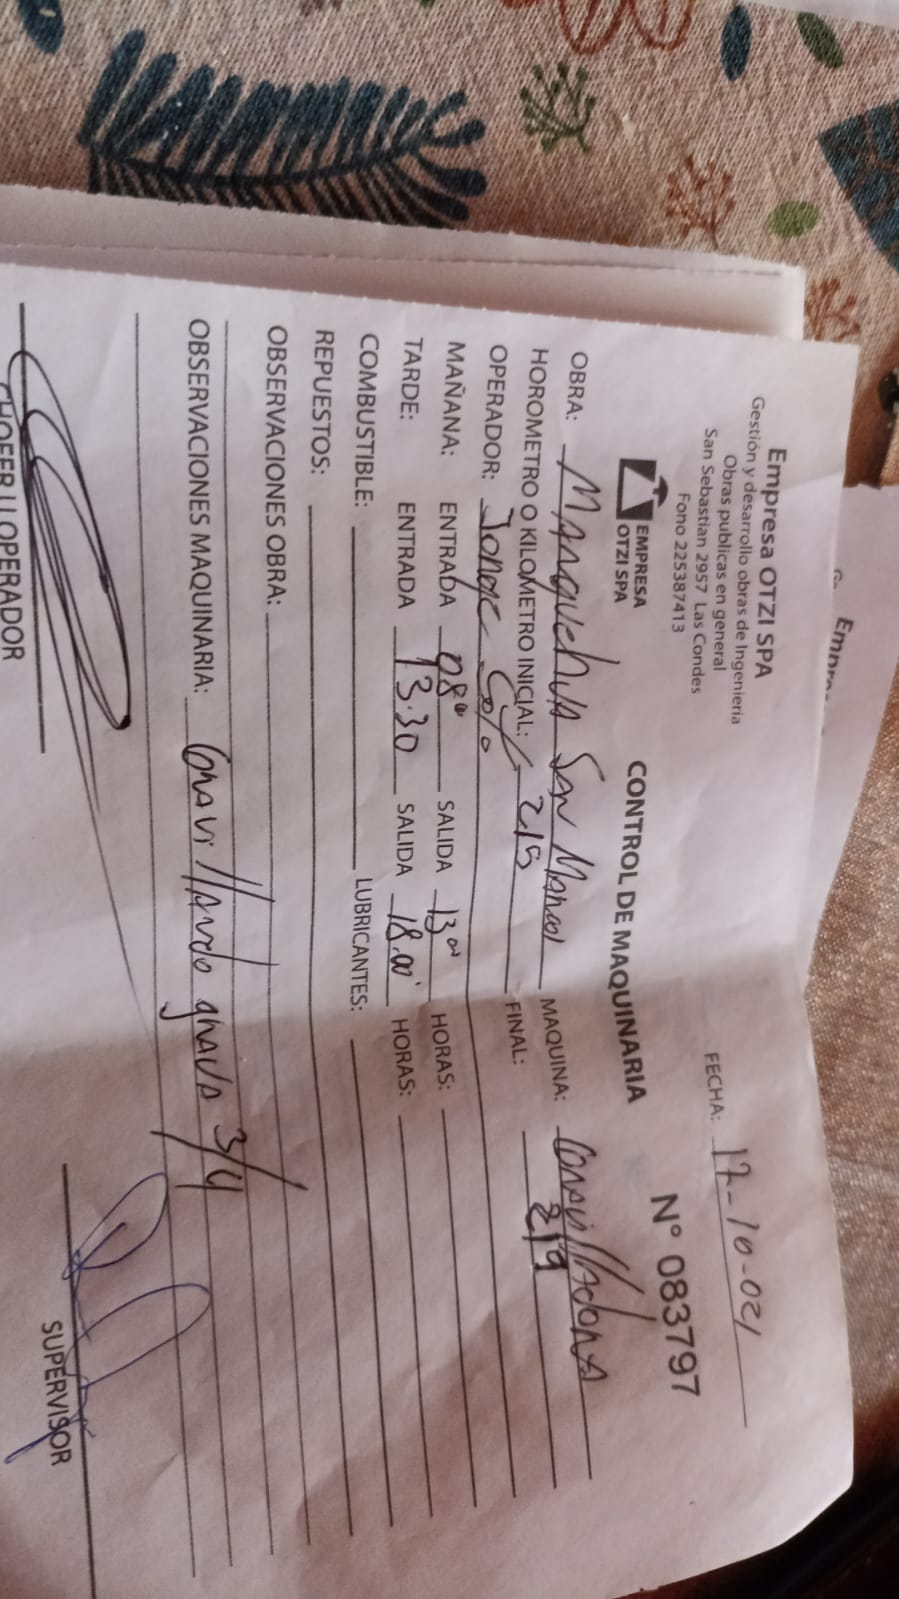 Empre
Empresa OTZI SPA
Gestión y desarrollo obras de Ingenieria
Obras publicas en general
San Sebastian 2957 Las Condes
Fono 225387413
EMPRESA
OTZI SPA
CONTROL DE MAQUINARIA
FECHA: 17-10-021
N° 083797
OBRA: Manquehua San Marcos MAQUINA: Gravilladora
HOROMETRO O KILOMETRO INICIAL: 215 FINAL: 219
OPERADOR: Jorge Soto
MAÑANA: ENTRADA 08⁰⁰ SALIDA 13⁰⁰ HORAS:
TARDE: ENTRADA 13.30 SALIDA 18.00 HORAS:
COMBUSTIBLE: LUBRICANTES:
REPUESTOS:
OBSERVACIONES OBRA:
OBSERVACIONES MAQUINARIA: Gravillando grava 3/4
CHOFER U OPERADOR SUPERVISOR